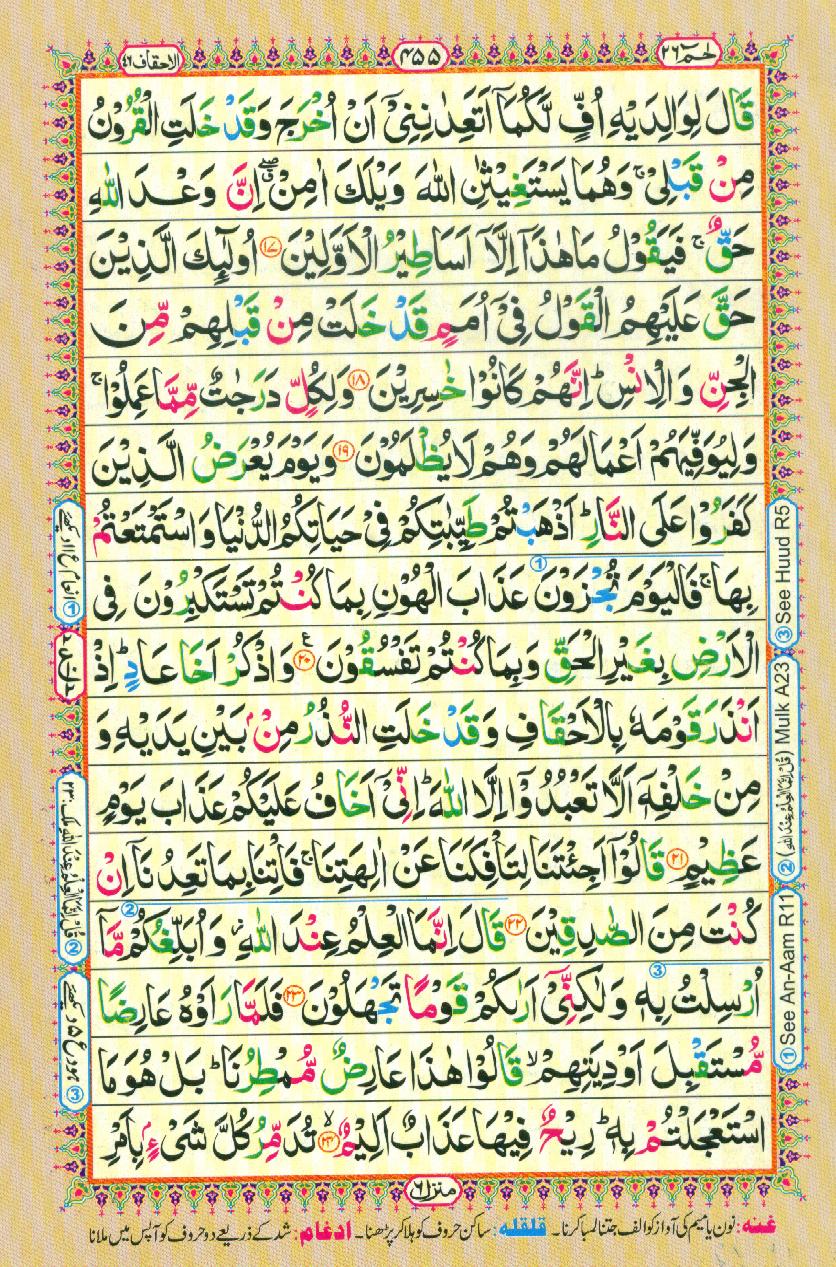 حٰمٓ ٢٦
٤٥٥
الاحقاف ٤٦
قَالَ لِوَالِدَيْهِ اُفٍّ لَّكُمَاۤ اَتَعِدٰنِنِىْۤ اَنْ اُخْرَجَ وَقَدْ خَلَتِ الْقُرُوْنُ
مِنْ قَبْلِىْ ۚ وَهُمَا يَسْتَغِيْثٰنِ اللّٰهَ وَيْلَكَ اٰمِنْ ۖ ۗ اِنَّ وَعْدَ اللّٰهِ
حَقٌّ ۚ فَيَقُوْلُ مَا هٰذَاۤ اِلَّاۤ اَسَاطِيْرُ الْاَوَّلِيْنَ ﴿١٧﴾ اُولٰٓئِكَ الَّذِيْنَ
حَقَّ عَلَيْهِمُ الْقَوْلُ فِىْۤ اُمَمٍ قَدْ خَلَتْ مِنْ قَبْلِهِمْ مِّنَ
الْجِنِّ وَالْاِنْسِ ؕ اِنَّهُمْ كَانُوْا خٰسِرِيْنَ ﴿١٨﴾ وَلِكُلٍّ دَرَجٰتٌ مِّمَّا عَمِلُوْا ۚ
وَلِيُوَفِّيَهُمْ اَعْمَالَهُمْ وَهُمْ لَا يُظْلَمُوْنَ ﴿١٩﴾ وَيَوْمَ يُعْرَضُ الَّذِيْنَ
كَفَرُوْا عَلَى النَّارِ ؕ اَذْهَبْتُمْ طَيِّبٰتِكُمْ فِىْ حَيَاتِكُمُ الدُّنْيَا وَاسْتَمْتَعْتُمْ
بِهَا ۚ فَالْيَوْمَ تُجْزَوْنَ عَذَابَ الْهُوْنِ بِمَا كُنْتُمْ تَسْتَكْبِرُوْنَ فِى
الْاَرْضِ بِغَيْرِ الْحَقِّ وَبِمَا كُنْتُمْ تَفْسُقُوْنَ ﴿٢٠﴾ ع وَاذْكُرْ اَخَا عَادٍ ؕ اِذْ
اَنْذَرَ قَوْمَهٗ بِالْاَحْقَافِ وَقَدْ خَلَتِ النُّذُرُ مِنْۢ بَيْنِ يَدَيْهِ وَ
مِنْ خَلْفِهٖۤ اَلَّا تَعْبُدُوْۤا اِلَّا اللّٰهَ ؕ اِنِّىْۤ اَخَافُ عَلَيْكُمْ عَذَابَ يَوْمٍ
عَظِيْمٍ ﴿٢١﴾ قَالُوْۤا اَجِئْتَنَا لِتَاْفِكَنَا عَنْ اٰلِهَتِنَا ۚ فَاْتِنَا بِمَا تَعِدُنَاۤ اِنْ
كُنْتَ مِنَ الصّٰدِقِيْنَ ﴿٢٢﴾ قَالَ اِنَّمَا الْعِلْمُ عِنْدَ اللّٰهِ ۖ وَاُبَلِّغُكُمْ مَّاۤ
اُرْسِلْتُ بِهٖ وَلٰكِنِّىْۤ اَرٰىكُمْ قَوْمًا تَجْهَلُوْنَ ﴿٢٣﴾ فَلَمَّا رَاَوْهُ عَارِضًا
مُّسْتَقْبِلَ اَوْدِيَتِهِمْ ۙ قَالُوْا هٰذَا عَارِضٌ مُّمْطِرُنَا ؕ بَلْ هُوَ مَا
اسْتَعْجَلْتُمْ بِهٖ ؕ رِيْحٌ فِيْهَا عَذَابٌ اَلِيْمٌ ﴿٢٤﴾ ۙ تُدَمِّرُ كُلَّ شَىْءٍۭ بِاَمْرِ
منزل ٦
① See An-Aam R11
② (قُلْ اِنَّمَا الْعِلْمُ عِنْدَ اللّٰهِ) Mulk A23
③ See Huud R5
① انعام ع ١١ دیکھئے
② قُلْ اِنَّمَا الْعِلْمُ عِنْدَ اللّٰهِ ملک: ٢٣
③ ہود ع ٥ دیکھئے
غنہ: نون یا میم کی آواز کو الف جتنا لمبا کرنا۔ قلقلہ: ساکن حروف کو ہلا کر پڑھنا۔ ادغام: شد کے ذریعے دو حروف کو آپس میں ملانا